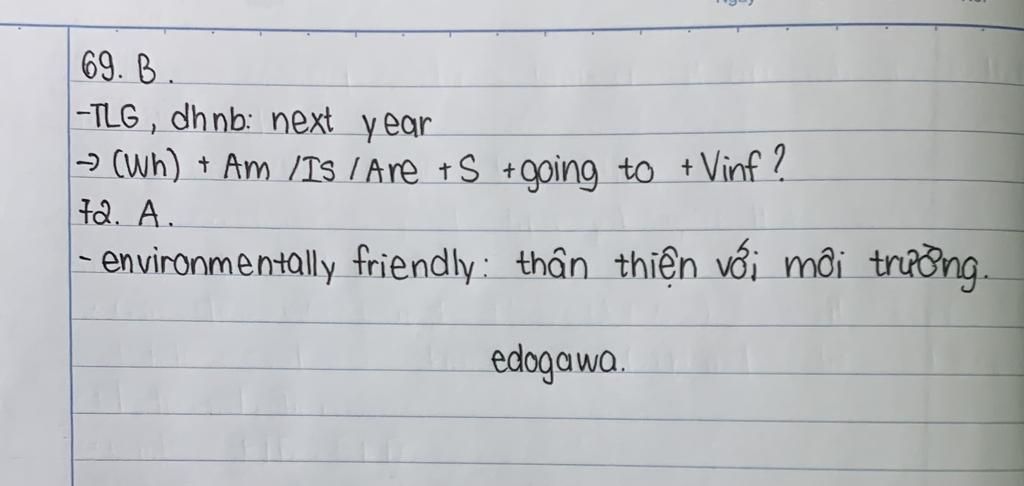 69. B.
-TLG, dhnb: next year
→ (Wh) + Am /Is /Are + S + going to + Vinf?
72. A.
- environmentally friendly: thân thiện với môi trường.
edogawa.